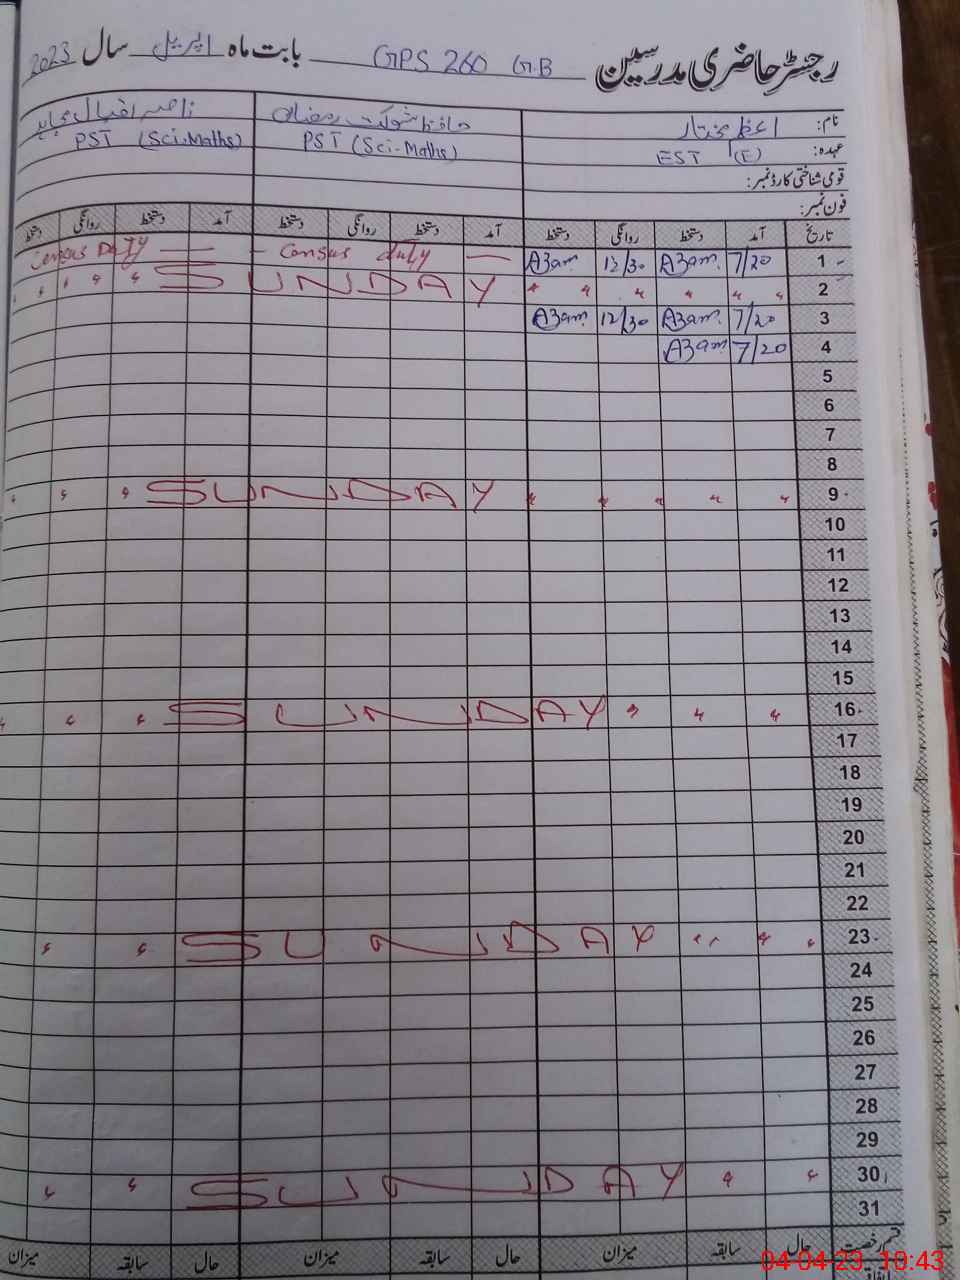 رجسٹر حاضری مدرسین GPS 260 G.B بابت ماہ اپریل سال 2023
نام: اعظم مختار حافظ شوکت رمضان ناصر اقبال
عہدہ: EST (E) PST (Sci-Maths) PST (Sci-Maths)
قومی شناختی کارڈ نمبر:
فون نمبر:
تاریخ آمد دستخط روانگی دستخط آمد دستخط روانگی دستخط آمد دستخط روانگی دستخط
1 7/20 Azam 12/30 Azam — Census duty — — Census Duty
2 " " " " " " SUNDAY " " " " "
3 7/20 Azam 12/30 Azam
4 7/20 Azam
5
6
7
8
9 " " " " " SUNDAY " " "
10
11
12
13
14
15
16 " " " SUNDAY " " "
17
18
19
20
21
22
23 " " " SUNDAY " "
24
25
26
27
28
29
30 " " SUNDAY " "
31
قسم رخصت حال سابقہ میزان حال سابقہ میزان حال سابقہ میزان
04-04-23 10:43